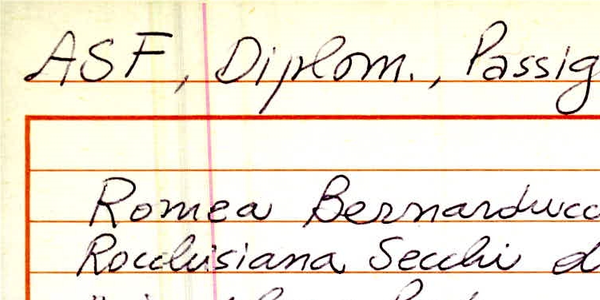 ASF, Diplom., Passig
Romea Bernarducc
Rocchisiana Secchi d